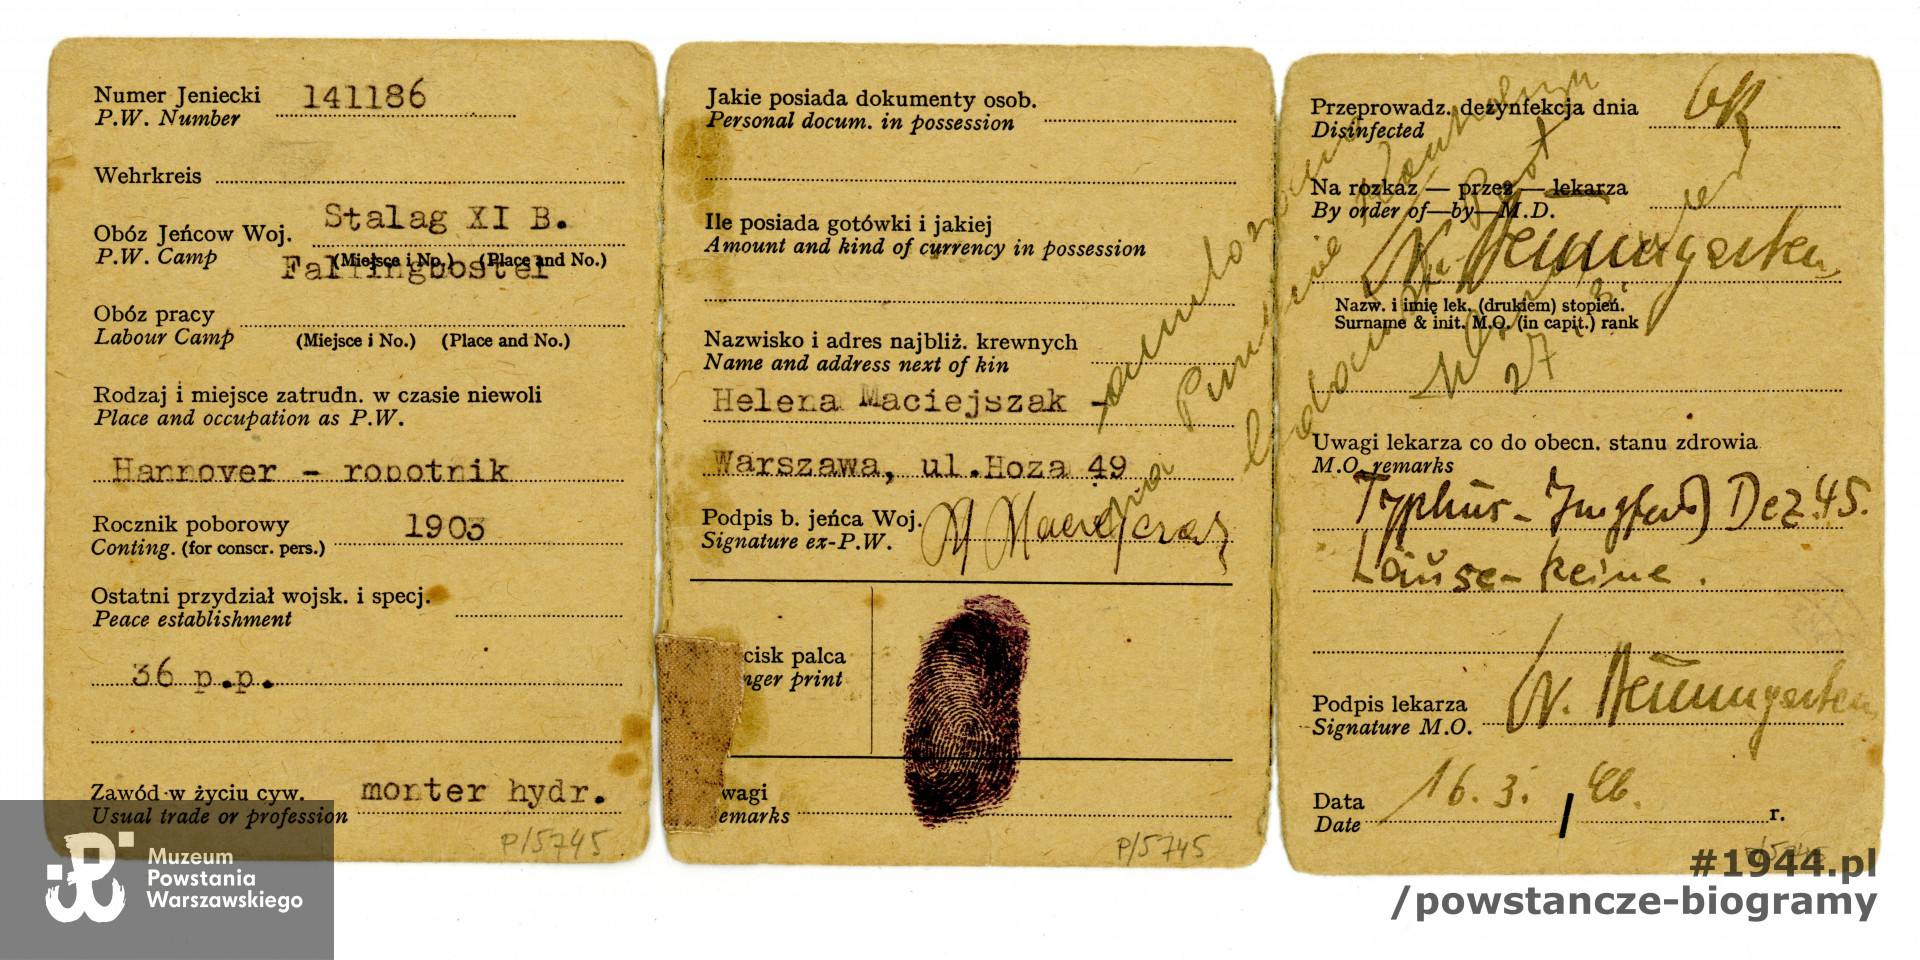 Numer Jeniecki 141186
P.W. Number
Wehrkreis
Stalag XI B.
Obóz Jeńcow Woj.
P.W. Camp (Miejsce i No.) (Place and No.)
Fallingboster
Obóz pracy
Labour Camp (Miejsce i No.) (Place and No.)
Rodzaj i miejsce zatrudn. w czasie niewoli
Place and occupation as P.W.
Hannover - robotnik
Rocznik poborowy 1903
Conting. (for conscr. pers.)
Ostatni przydział wojsk. i specj.
Peace establishment
36 p.p.
Zawód w życiu cyw. monter hydr.
Usual trade or profession
P/5745
Jakie posiada dokumenty osob.
Personal docum. in possession
Ile posiada gotówki i jakiej
Amount and kind of currency in possession
Nazwisko i adres najbliż. krewnych
Name and address next of kin
Helena Maciejszak -
Warszawa, ul.Hoza 49
Podpis b. jeńca Woj.
Signature ex-P.W.
cisk palca
nger print
wagi
emarks
P/5745
Przeprowadz. dezynfekcja dnia
Disinfected
Na rozkaz — przez — lekarza
By order of—by—M.D.
Nazw. i imię lek. (drukiem) stopień.
Surname & init. M.O. (in capit.) rank
27
Uwagi lekarza co do obecn. stanu zdrowia
M.O. remarks
Typhus - Dez. 45.
Läuse - keine.
Podpis lekarza
Signature M.O.
Data 16. 3. / 46. r.
Date
Muzeum
Powstania
Warszawskiego
#1944.pl
/powstancze-biogramy